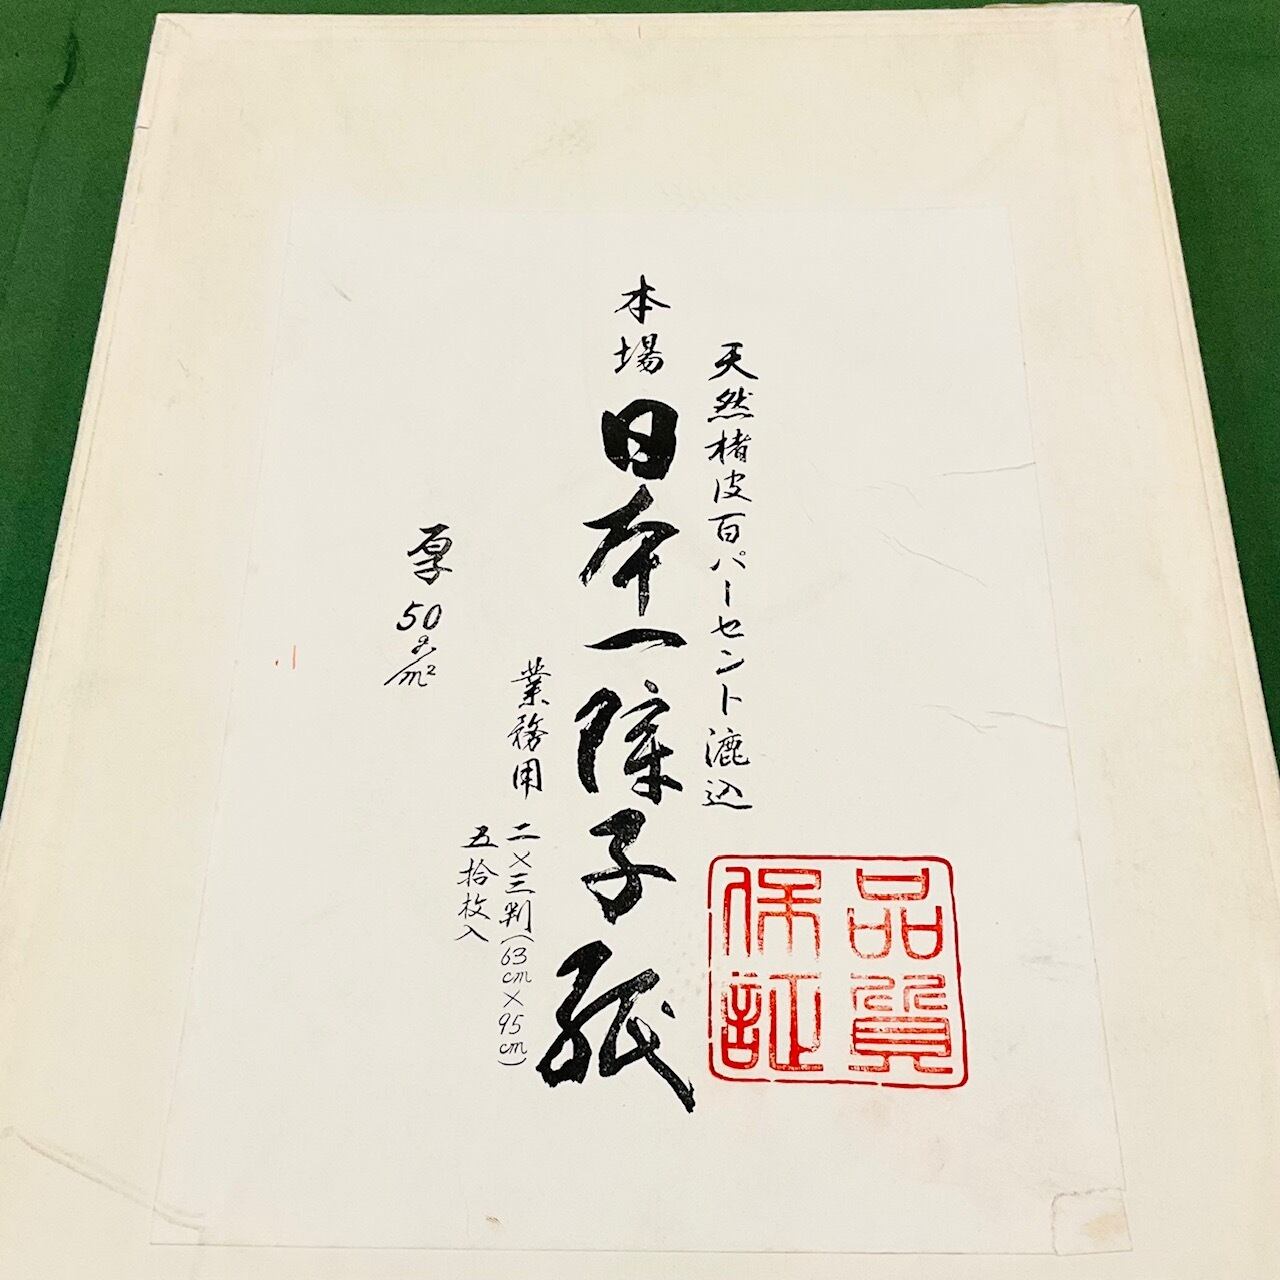 天然楮皮百パーセント漉込
本場 日本一障子紙
業務用 二×三判(63cm×95cm)
五拾枚入
厚 50g/m²
品質
保証